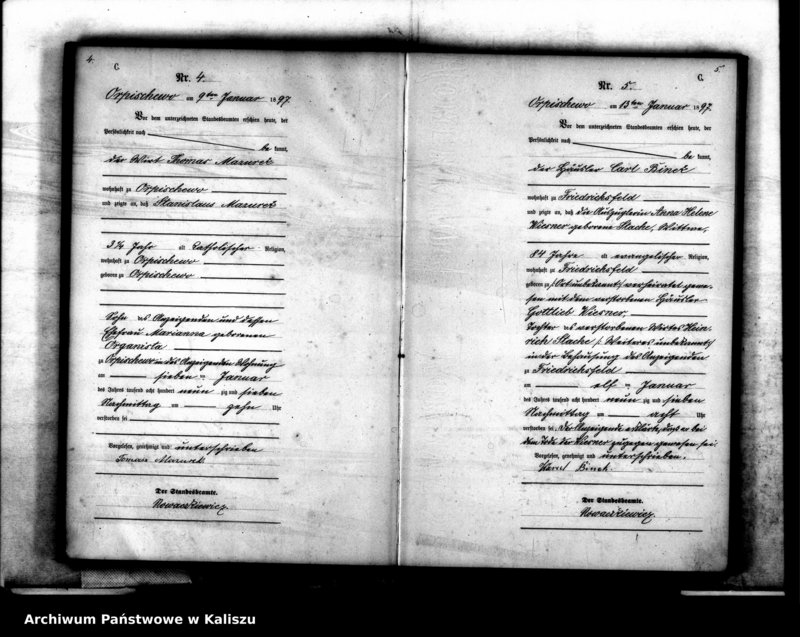 4.
C.
Nr. 4.
Orpischewo am 9ten Januar 1897
Vor dem unterzeichneten Standesbeamten erschien heute, der
Persönlichkeit nach
be kannt,
der Wirt Thomas Mazurek
wohnhaft zu Orpischewo
und zeigte an, daß Stanislaus Mazurek
3 1/4 Jahr alt katholischer Religion,
wohnhaft zu Orpischewo
geboren zu Orpischewo
Sohn des Anzeigenden und dessen
Ehefrau Marianna geborenen
Organista
zu Orpischewo in des Anzeigenden Wohnung
am sieben ten Januar
des Jahres tausend acht hundert neun zig und sieben
Nachmittag um zehn Uhr
verstorben sei
Vorgelesen, genehmigt und unterschrieben
Tomasz Mazurek
Der Standesbeamte.
Nowackiewicz
5.
C.
Nr. 5.
Orpischewo am 13ten Januar 1897
Vor dem unterzeichneten Standesbeamten erschien heute, der
Persönlichkeit nach
be kannt,
der Häusler Carl Binek
wohnhaft zu Friedrichsfeld
und zeigte an, daß die Auszüglerin Anna Helene
Wiesner geborene Stache, Wittwe,
84 Jahre alt evangelischer Religion,
wohnhaft zu Friedrichsfeld
geboren zu /:Ort unbekannt:/ verheiratet gewe-
sen mit dem verstorbenen Häusler
Gottlieb Wiesner,
Tochter des verstorbenen Wirtes Hein-
rich Stache /: Weiteres unbekannt:/
in der Behausung des Anzeigenden
zu Friedrichsfeld
am elf ten Januar
des Jahres tausend acht hundert neun zig und sieben
Nachmittag um acht Uhr
verstorben sei. Der Anzeigende erklärte, dass er bei
dem Tode der Wiesner zugegen gewesen sei.
Vorgelesen, genehmigt und unterschrieben.
Karol Binek.
Der Standesbeamte.
Nowackiewicz.
Archiwum Państwowe w Kaliszu